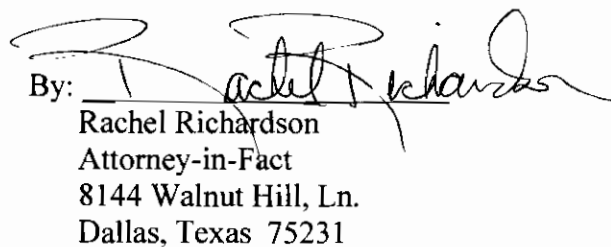 By: Rachel Richardson
Rachel Richardson
Attorney-in-Fact
8144 Walnut Hill, Ln.
Dallas, Texas 75231